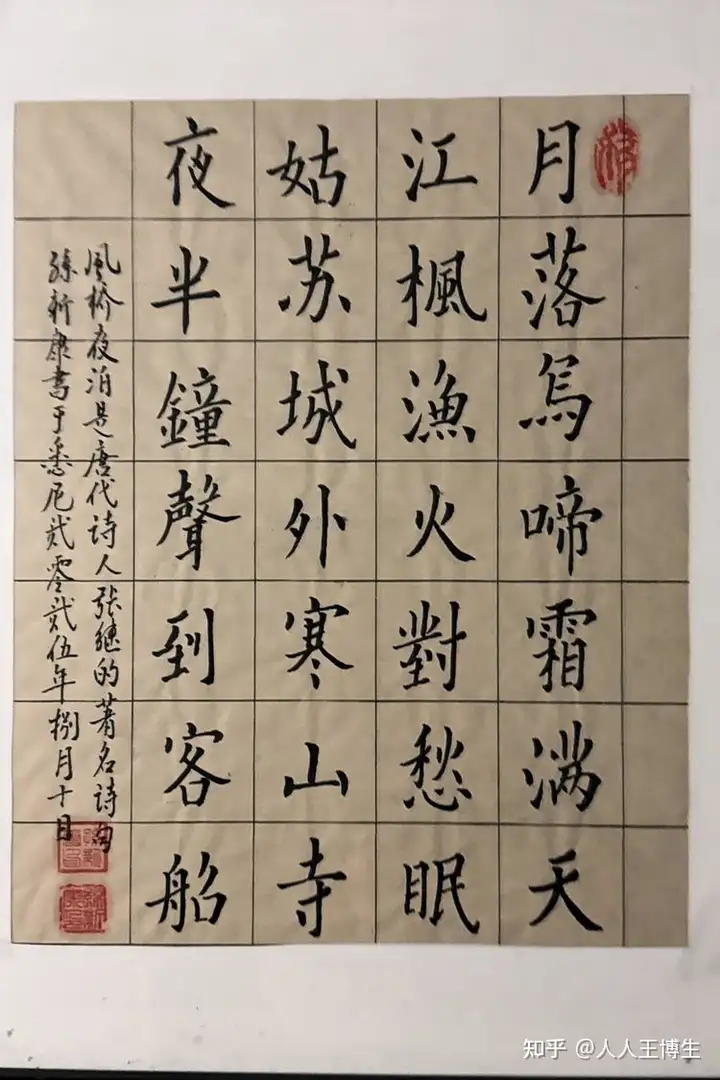 月落烏啼霜满天
江楓漁火對愁眠
姑苏城外寒山寺
夜半鐘聲到客船
風桥夜泊是唐代诗人张继的著名诗句
孫新康書于悉尼贰零贰伍年捌月十日
知乎 @人人王博生